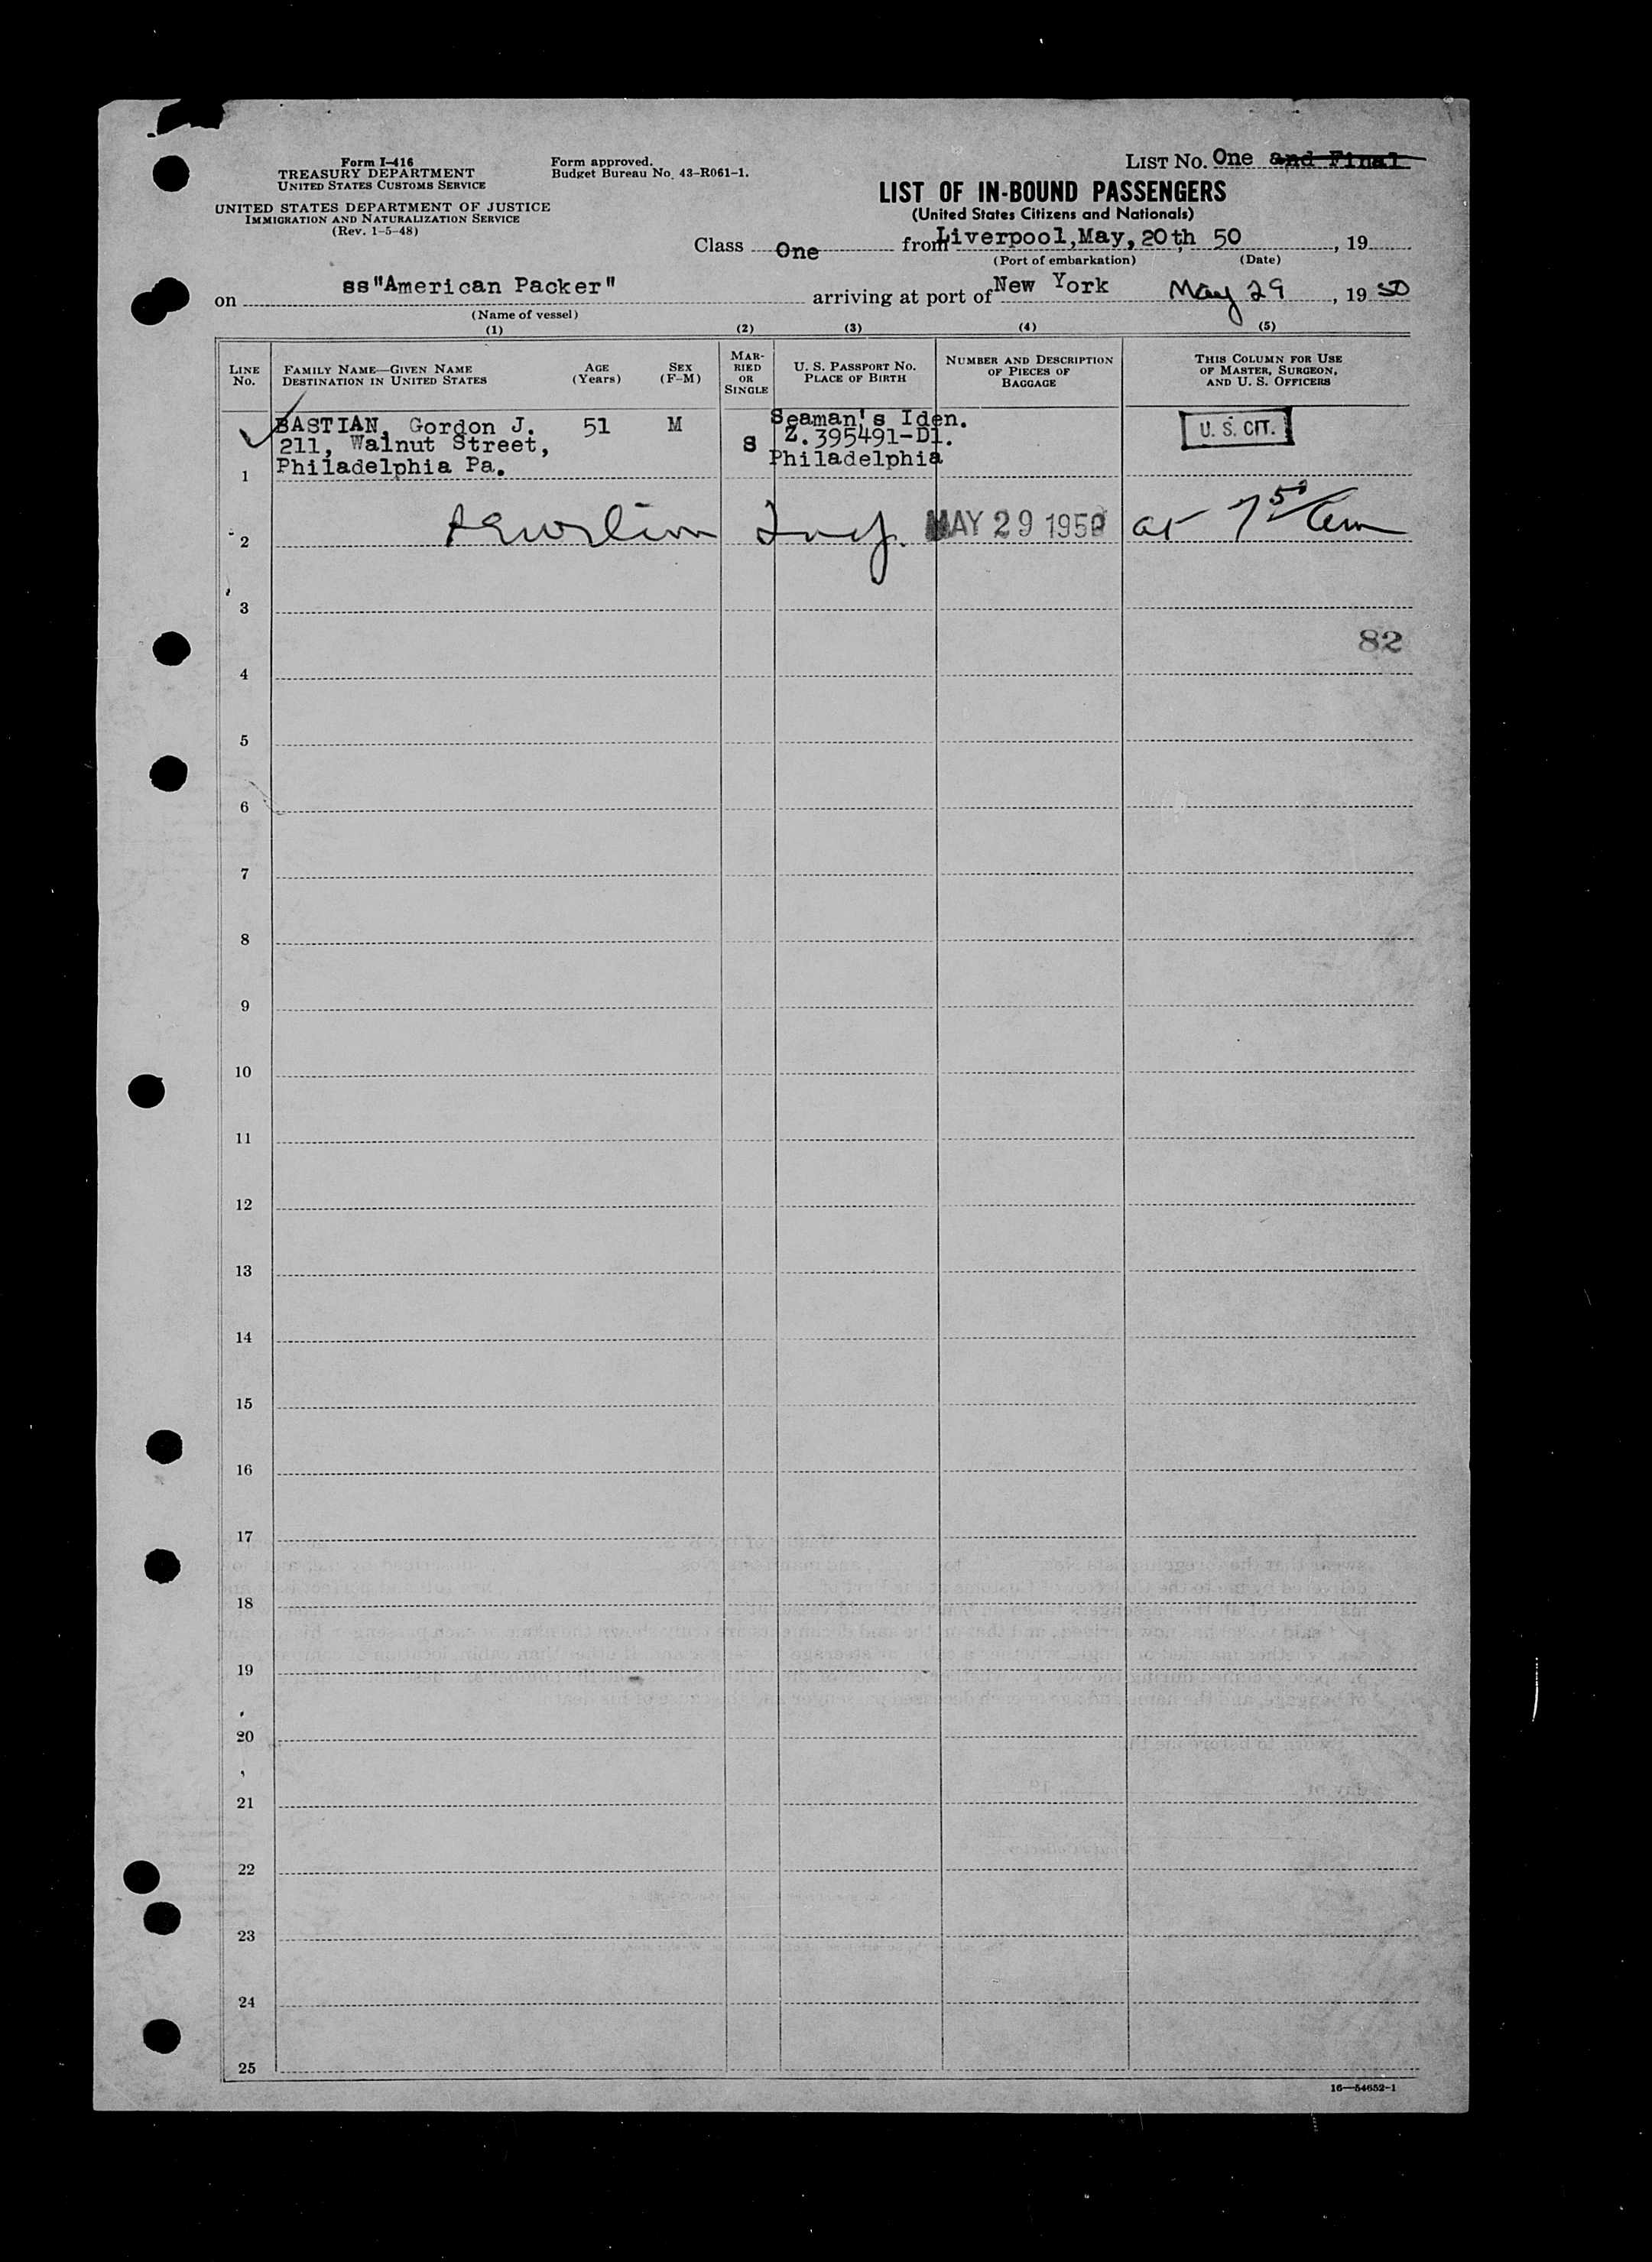 Form I-416
TREASURY DEPARTMENT
UNITED STATES CUSTOMS SERVICE
UNITED STATES DEPARTMENT OF JUSTICE
IMMIGRATION AND NATURALIZATION SERVICE
(Rev. 1-5-48)
Form approved.
Budget Bureau No. 43-R061-1.
LIST NO. One and Final
LIST OF IN-BOUND PASSENGERS
(United States Citizens and Nationals)
Class One from Liverpool, May, 20th, 50, 19
(Port of embarkation) (Date)
on ss "American Packer" arriving at port of New York May 29, 19 50
(Name of vessel)
(1) (2) (3) (4) (5)
LINE NO.
FAMILY NAME—GIVEN NAME
DESTINATION IN UNITED STATES
AGE (Years)
SEX (F-M)
MARRIED OR SINGLE
U. S. PASSPORT NO.
PLACE OF BIRTH
NUMBER AND DESCRIPTION OF PIECES OF BAGGAGE
THIS COLUMN FOR USE OF MASTER, SURGEON, AND U. S. OFFICERS
BASTIAN, Gordon J. 51 M S Seaman's Iden.
211, Walnut Street, Z.395491-D1.
Philadelphia Pa. Philadelphia
U. S. CIT.
1
2 MAY 29 1950 at 7 50 am
3
82
4
5
6
7
8
9
10
11
12
13
14
15
16
17
18
19
20
21
22
23
24
25
16—54652-1